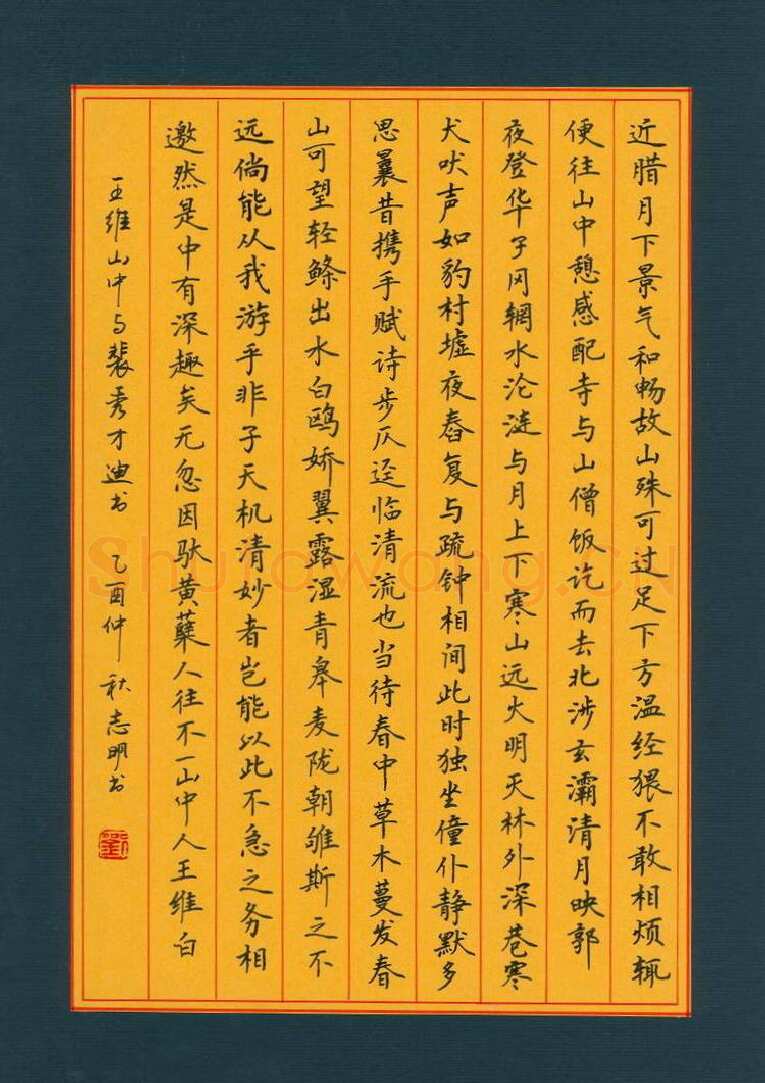 近腊月下景气和畅故山殊可过足下方温经猥不敢相烦辄
便往山中憩感配寺与山僧饭讫而去北涉玄灞清月映郭
夜登华子冈辋水沦涟与月上下寒山远火明灭林外深巷寒
犬吠声如豹村墟夜舂复与疏钟相间此时独坐僮仆静默多
思曩昔携手赋诗步仄迳临清流也当待春中草木蔓发春
山可望轻鲦出水白鸥娇翼露湿青皋麦陇朝雊斯之不
远倘能从我游乎非子天机清妙者岂能以此不急之务相
邀然是中有深趣矣无忽因驮黄蘗人往不一山中人王维白
王维山中与裴秀才迪书 乙酉仲秋志明书
劉
Shufawang.CN